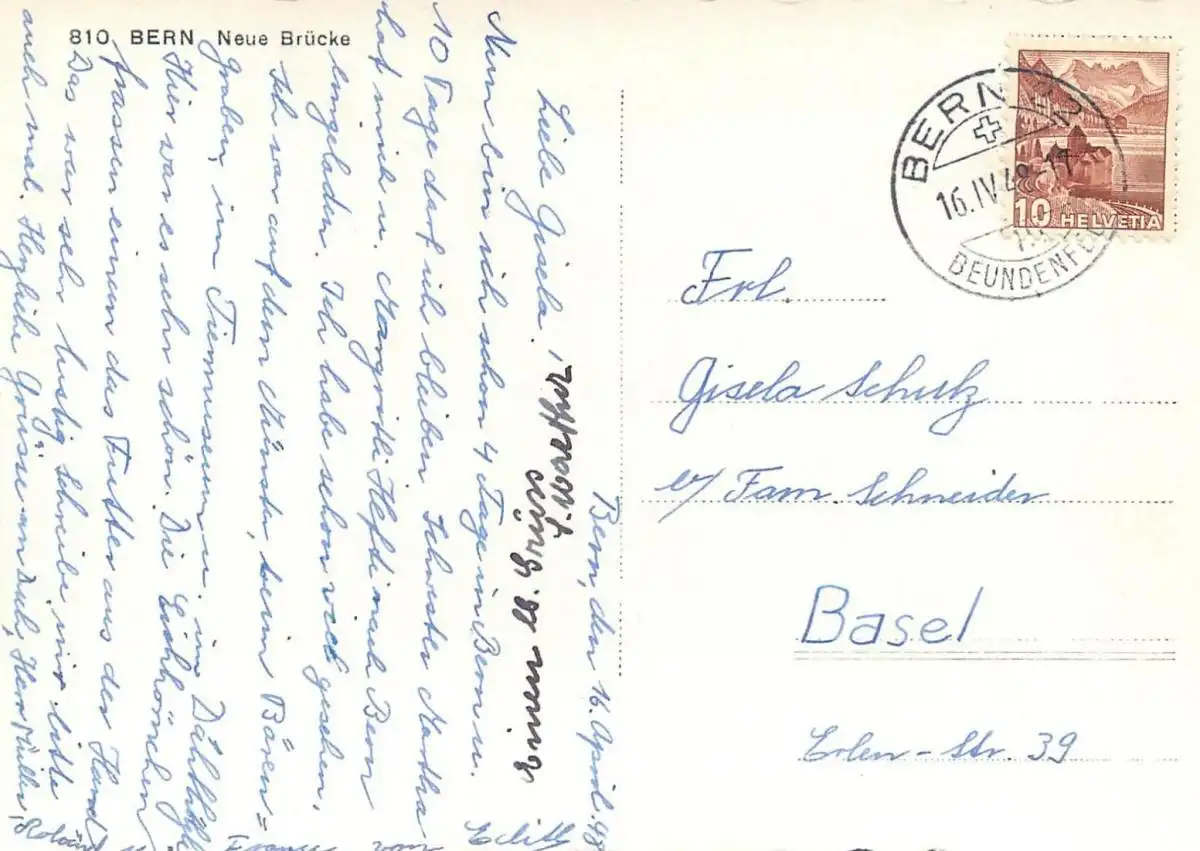 810 BERN Neue Brücke
Bern, den 16. April. 48
Liebe Gisela!
Nun bin ich schon 4 Tage in Bern u.
10 Tage darf ich bleiben. Schwester Martha
hat mich u. Margritli Hefti nach Bern
eingeladen. Ich habe schon viel gesehen.
Ich war auf dem Münster, beim Bären=
graben, im Tiermuseum u. im Dählhölzli
Hier war es sehr schön. Die Eichhörnchen
frassen einem das Futter aus der Hand
Das war sehr lustig. Schreibe mir bitte
auch mal. Herzliche Grüsse an Dich, Herr Müller,
Roland u. Franz von Edith
Einen lb. Gruss
S. Martha
BERN 22
16.IV.48-17
BEUNDENFELD
10 HELVETIA
Frl.
Gisela Schulz
c/ Fam Schneider
Basel
Erlen-Str. 39